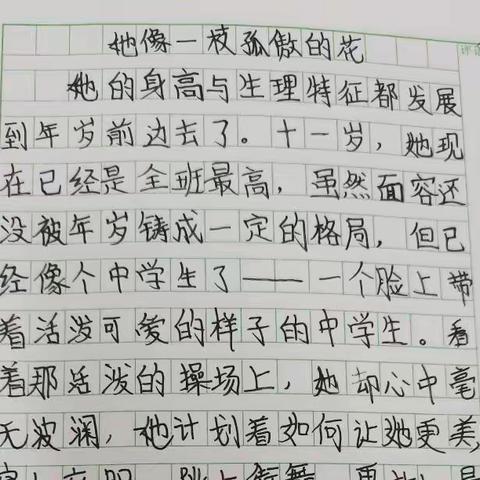 她像一枝孤傲的花
她的身高与生理特征都发展
到年岁前边去了。十一岁，她现
在已经是全班最高，虽然面容还
没被年岁铸成一定的格局，但已
经像个中学生了——一个脸上带
着活泼可爱的样子的中学生。看
着那活泼的操场上，她却心中毫
无波澜，她计划着如何让她更美，